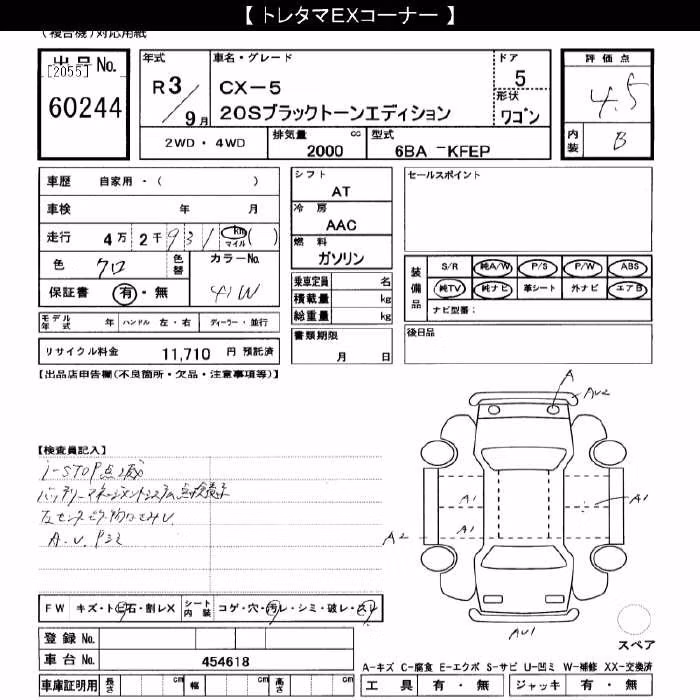 【 トレタマEXコーナー 】
(複合機)対応用紙
出品No.
[2055]
60244
年式
R3/9月
車名・グレード
CX-5
20Sブラックトーンエディション
ドア
5
形状
ワゴン
2WD・4WD
排気量 cc
2000
型式
6BA -KFEP
評価点
4.5
内装
B
車歴 自家用・( )
車検 年 月
走行 4万2千931 km マイル ( )
色 クロ 色替
カラーNo.
41W
保証書 有・無
モデル年式 年 ハンドル 左・右 ディーラー・並行
リサイクル料金 11,710 円 預託済
シフト
AT
冷房
AAC
燃料
ガソリン
乗車定員 名
積載量 kg
総重量 kg
書類期限
月 日
セールスポイント
装備品
S/R 純A/W P/S P/W ABS
純TV 純ナビ 革シート 外ナビ エアB
ナビ型番:
後日品
【出品店申告欄(不良箇所・欠品・注意事項等)】
【検査員記入】
i-STOP点滅
バッテリーマネージメントシステム点検表示
A.U.Pミミ
A
AU2
A1
A1
A1
A2
AU1
スペア
FW キズ・トビ石・割レX
シート内装 コゲ・穴・汚レ・シミ・破レ・スレ
登録No.
車台No. 454618
車庫証明用 長さ cm 幅 cm 高さ cm
A-キズ C-腐食 E-エクボ S-サビ U-凹ミ W-補修 XX-交換済
工具 有・無 ジャッキ 有・無